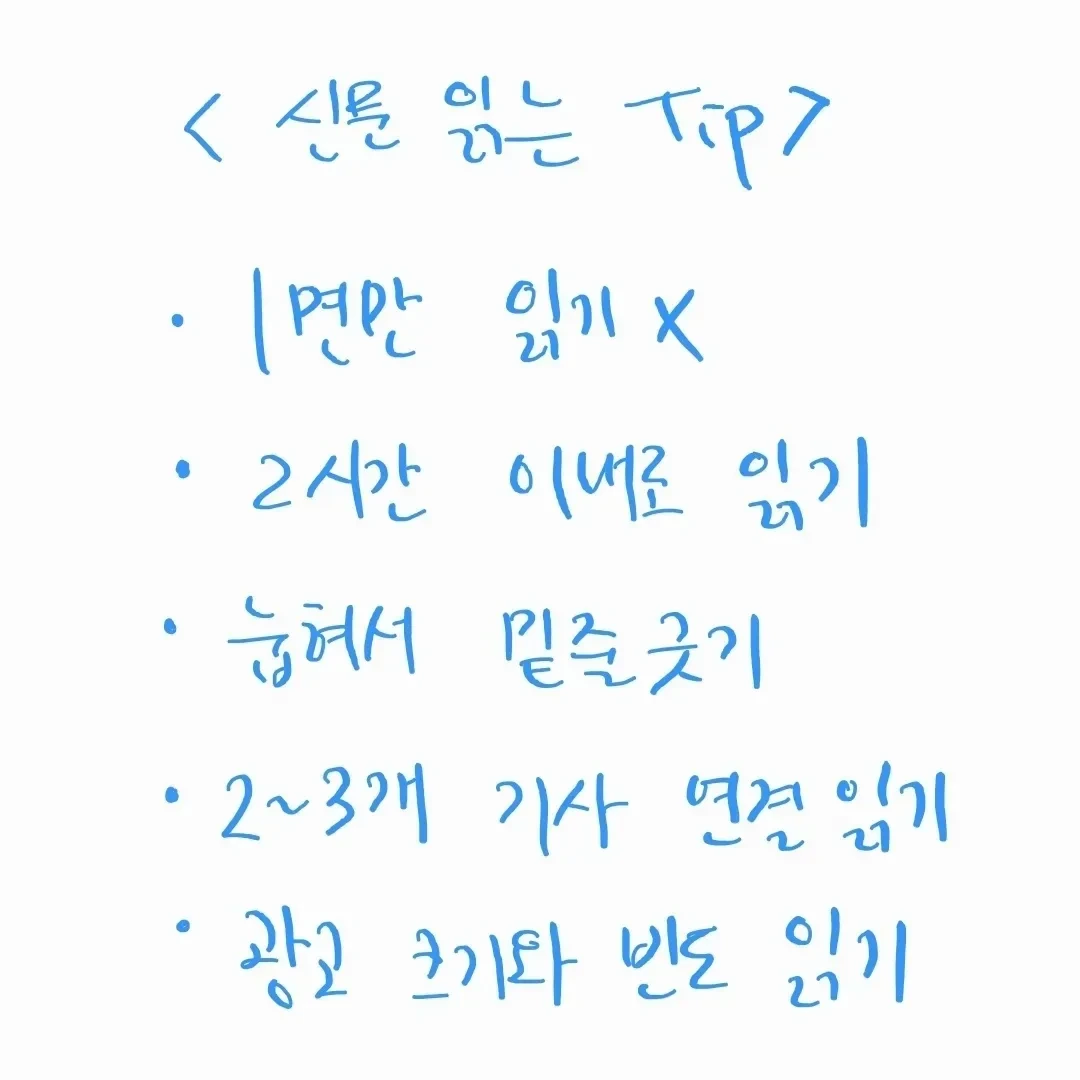 < 신문 읽는 Tip >
· 1면만 읽기 X
· 2시간 이내로 읽기
· 눕혀서 밑줄 긋기
· 2~3개 기사 연결 읽기
· 광고 크기와 빈도 읽기